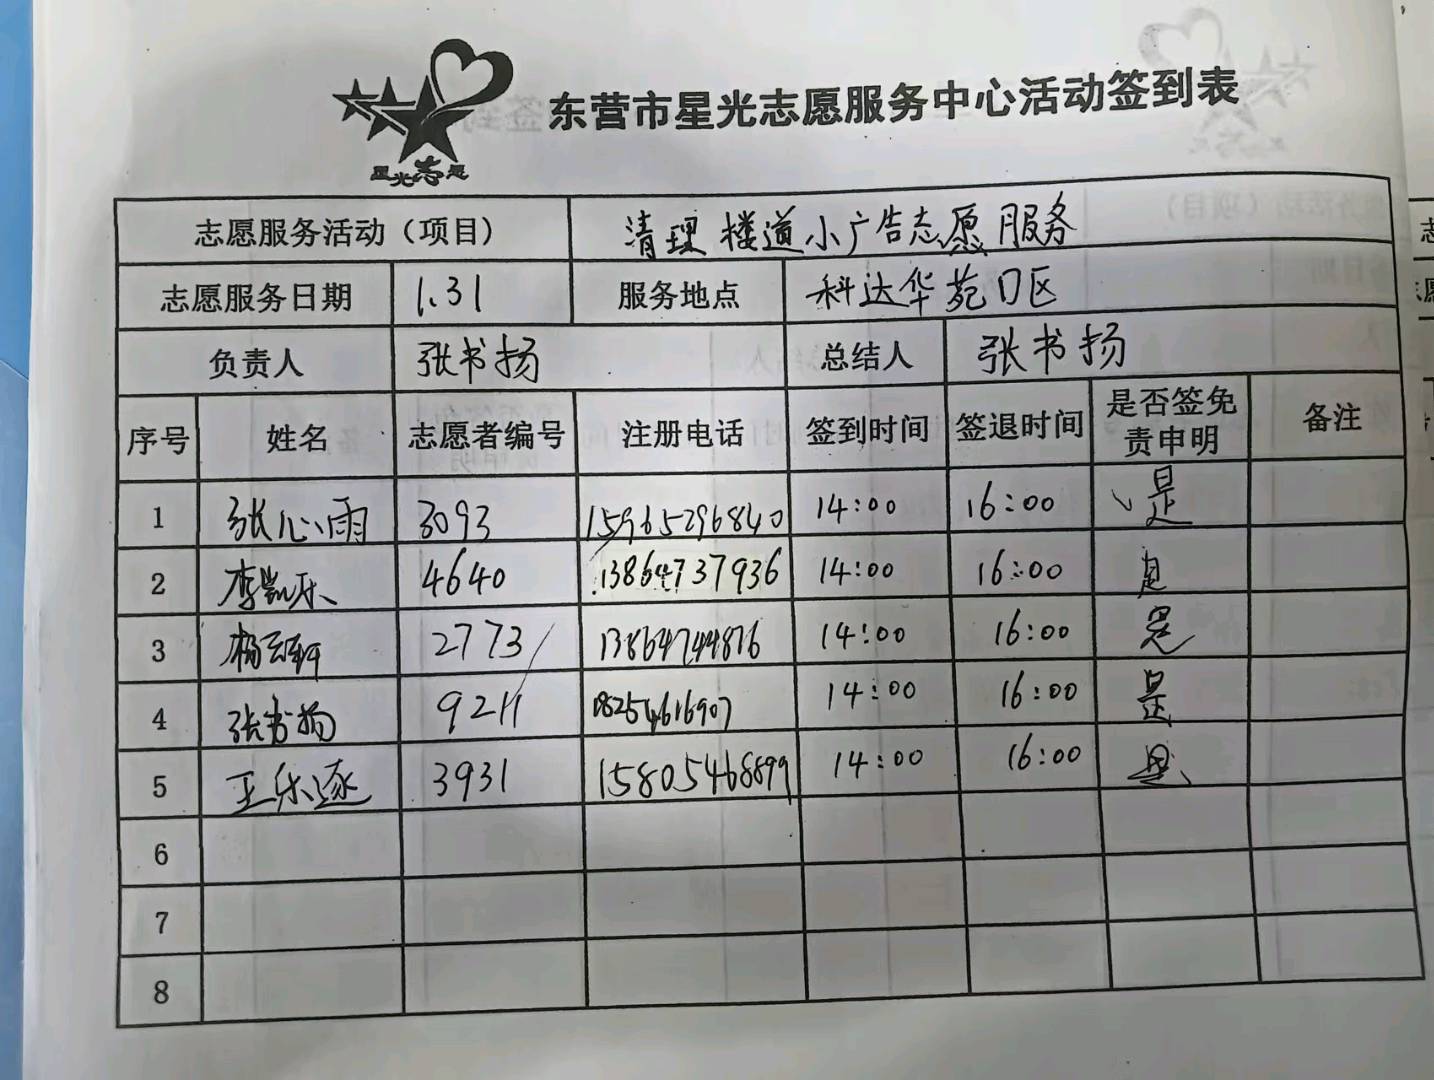 东营市星光志愿服务中心活动签到表
星光志愿
志愿服务活动（项目） 清理楼道小广告志愿服务
志愿服务日期 1.31 服务地点 科达华苑D区
负责人 张书扬 总结人 张书扬
序号 姓名 志愿者编号 注册电话 签到时间 签退时间 是否签免责申明 备注
1 张心雨 3093 15965296840 14:00 16:00 是
2 李凯乐 4640 13864737936 14:00 16:00 是
3 2773 13864744876 14:00 16:00 是
4 张书扬 9211 18254616907 14:00 16:00 是
5 王乐逐 3931 15805468899 14:00 16:00 是
6
7
8